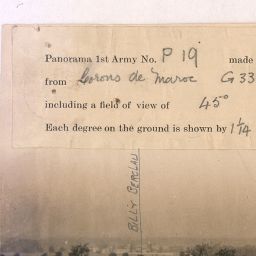 Panorama 1st Army No. P 19 made
from Corons de Maroc G 33
including a field of view of 45°
Each degree on the ground is shown by 1 1/4
BILLY BERCLAU